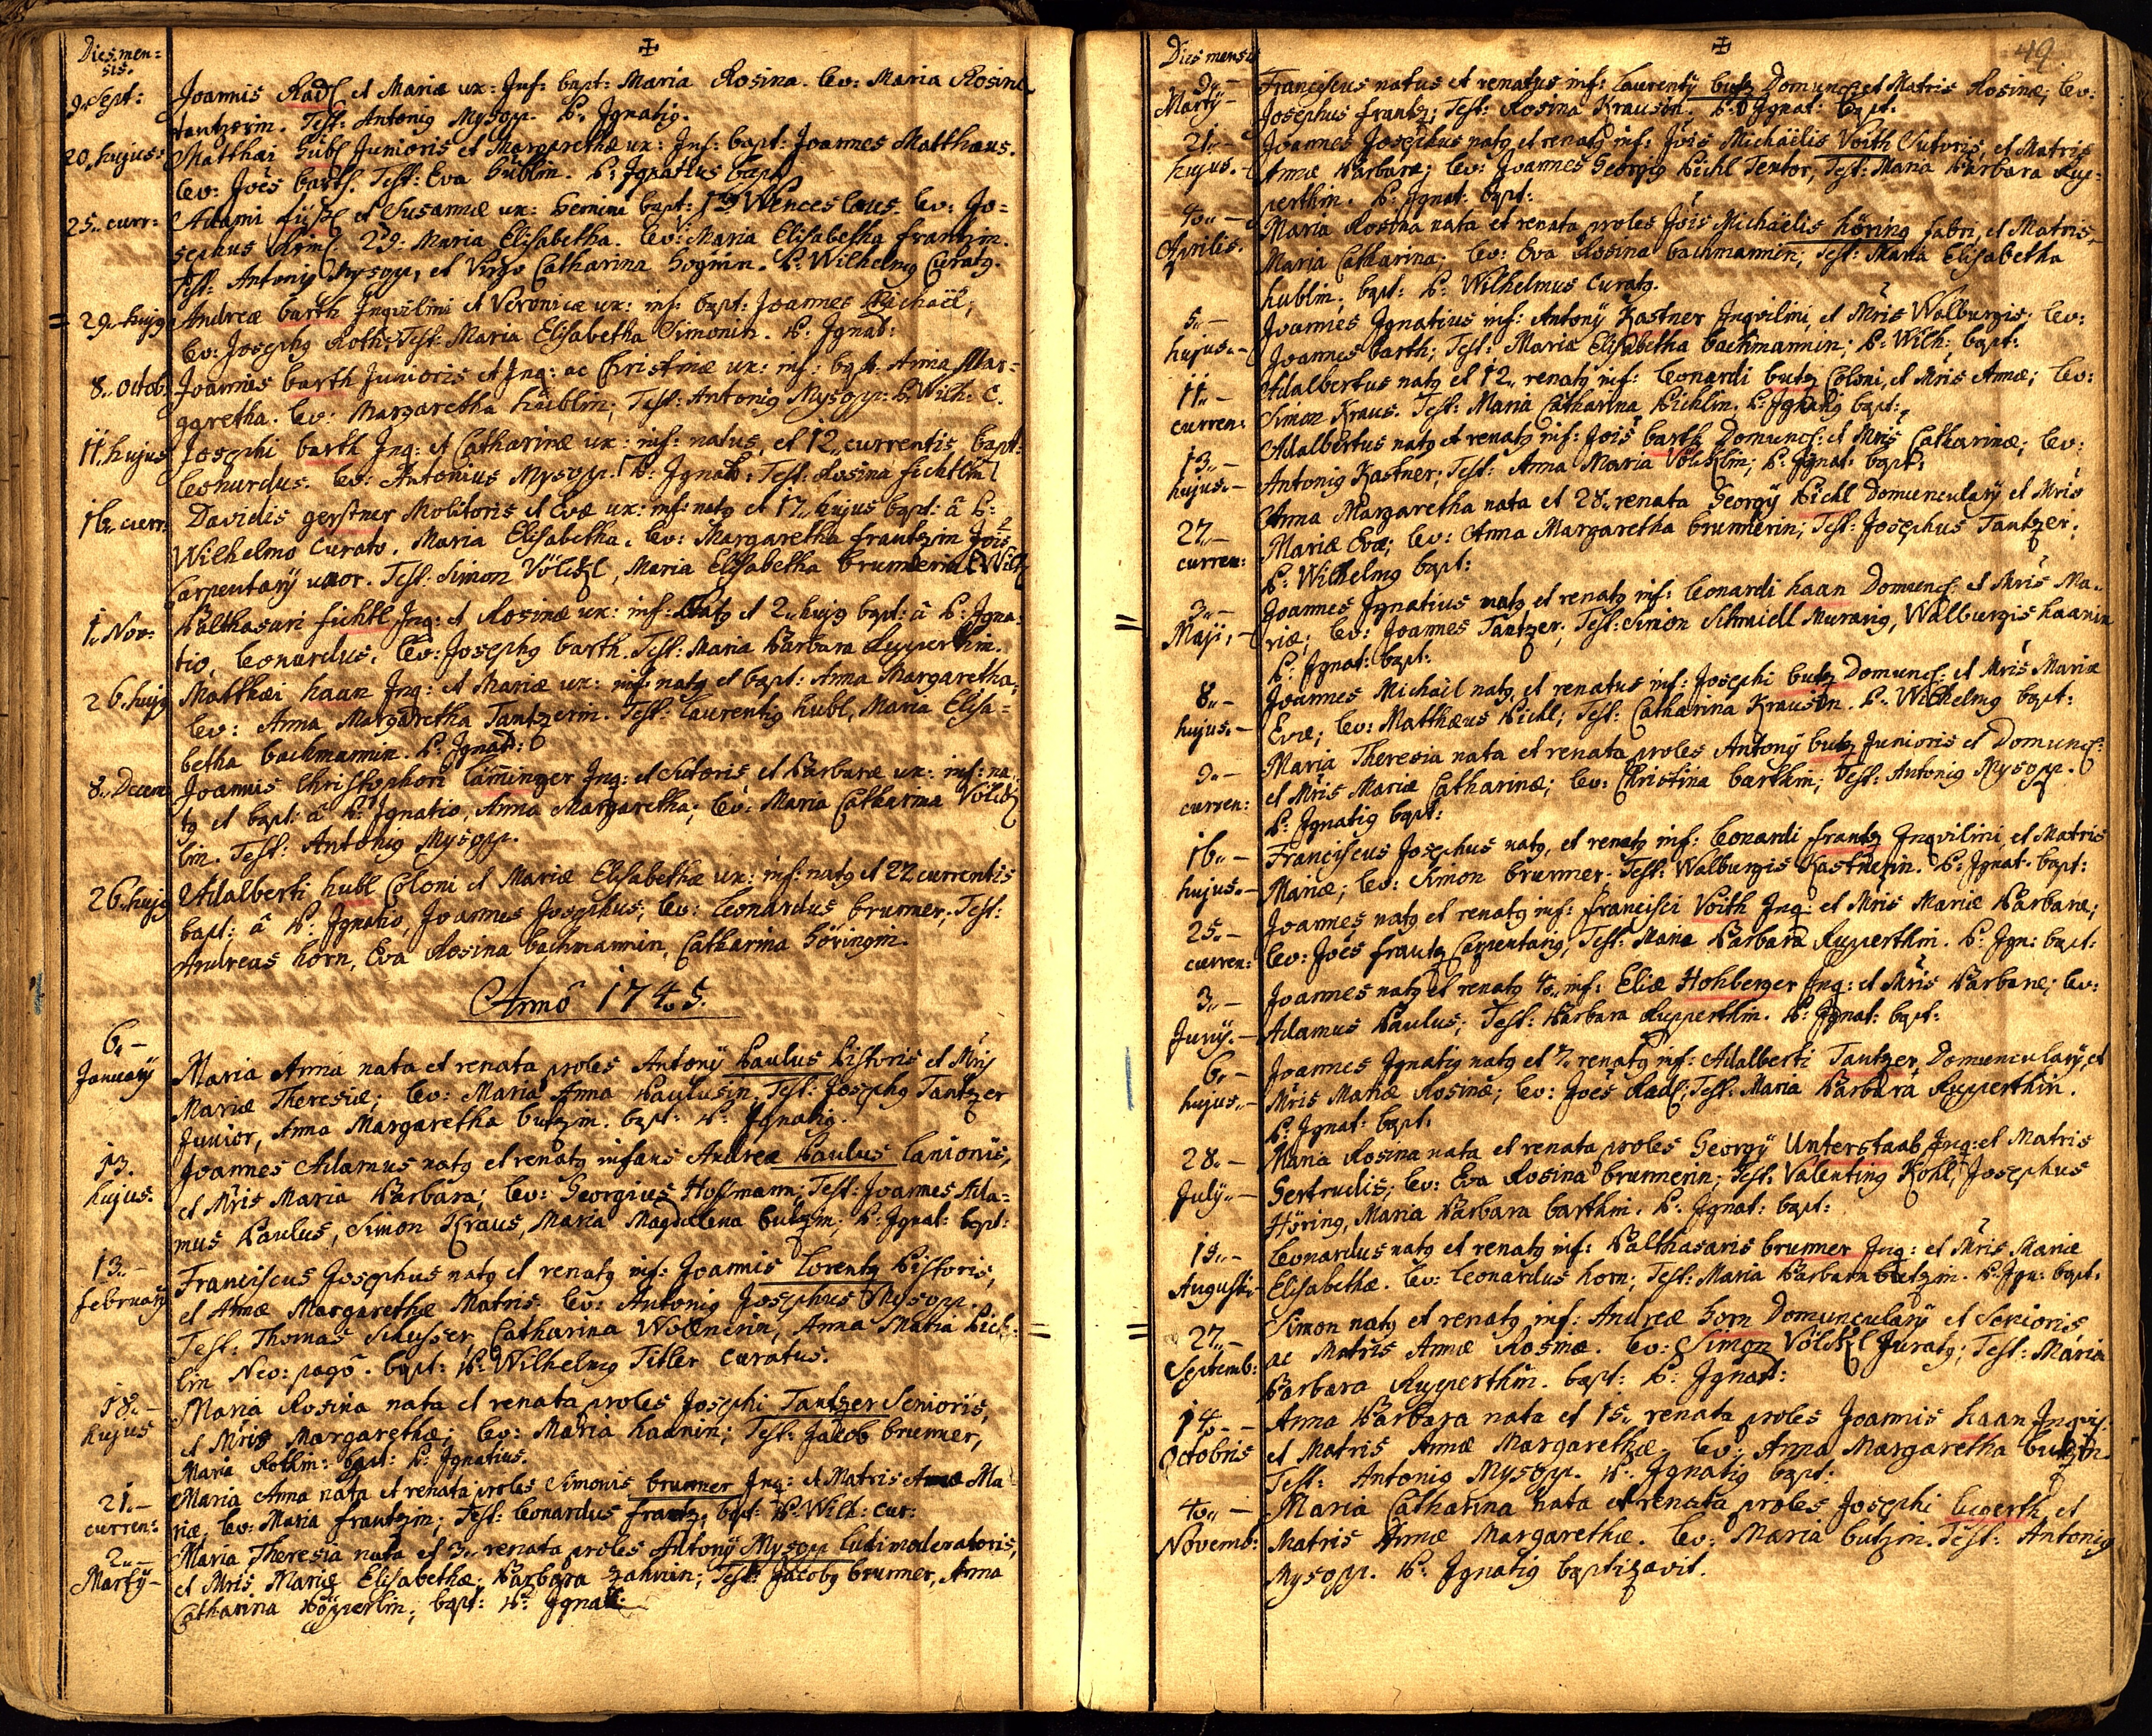 Dies men:
sis.
9. Sept:
Joannis Radl et Mariæ ux: Inf: bapt: Maria Rosina. lev: Maria Rosina
Tantzerin. Test: Antonig Mysopp. P. Ignatig.
20. hujus:
Matthæi Hübl Junioris et Margarethæ ux: Inf: bapt: Joannes Matthæus.
lev: Joes barth. Test: Eva Hüblin. P. Ignatius bapt:
25. curr:
Adami et Susannæ ux: Gemini bapt: 1us Wenceslaus. lev: Jo=
sephus 2da: Maria Elisabetha. lev: Maria Elisabetha frantzin.
Test: Antony Mysopp, et Virgo Catharina P. Wilhelmg Curatg.
29. hujg
Andreæ barth Inqvilini et Veronicæ ux: inf: bapt: Joannes Michäel;
lev: Josephg Roth; Test: Maria Elisabetha Simonin. P. Ignat:
8. Octob:
Joannis barth Junioris et Inq: ac Christinæ ux: inf: bapt: Anna Mar=
garetha. lev: Margaretha hüblin; Test: Antonig Mysopp. P. Wilh: C.
11. hujus
Josephi barth Inq: et Catharinæ ux: inf: natus, et 12. currentis bapt:
Leonardus. lev: Antonius Mysopp. P. Ignat: Test: Rosina fichtlin
16. curr:
Davidis gerstner Molitoris et Evæ ux: inf: natg et 17. hujus bapt: â P.
Wilhelmo Curato. Maria Elisabetha. lev: Margaretha frantzin Jois
Carpentarÿ uxor. Test: Simon Völckl, Maria Elisabetha brunnerin
1. Nov:
Balthasari fichtl Inq: et Rosinæ ux: inf: natg et 2. hujg bapt: â P. Igna=
tio, Leonardus. lev: Josephg barth. Test: Maria Barbara Rupperthin.
26. hujg
Matthæi haan Inq: et Mariæ ux: inf: natg et bapt: Anna Margaretha,
lev: Anna Margaretha Tantzerin. Test: Laurentig hubl, Maria Elisa=
betha bachmannin. P. Ignat:
8. Decem
Joannis Christophori Laminger Inq: et Sutoris et Barbaræ ux: inf: na
tg et bapt: â P. Ignatio, Anna Margaretha; lev: Maria Catharina Völck
lin. Test: Antonig Mysopp.
26. hujg
Adalberti hubl Coloni et Mariæ Elisabethæ ux: inf: natg et 27 currentis
bapt: â P. Ignatio, Joannes Josephus; lev: Leonardus brunner, Test:
Andreas horn, Eva Rosina bachmannin, Catharina Höringin.
Anno 1745.
6. –
Januarÿ
Maria Anna nata et renata proles Antonÿ Paulus Pistoris et Mris
Mariæ Theresiæ; lev: Maria Anna Paulusin, Test: Josephg Tantzer
Junior, Anna Margaretha butzin. bapt: P. Ignatig.
13.
hujus.
Joannes Adamus natg et renatg infans Andreæ Paulus Lanionis,
et Mris Maria Barbara; lev: Georgius Hoffmann; Test: Joannes Ada=
mus Paulus, Simon Kraus, Maria Magdalena butzin; P. Ignat: bapt:
13. –
februarÿ
Franciscus Josephus natg et renatg inf: Joannis Lorentz Pistoris,
et Annæ Margarethæ Matris. lev: Antonig Josephus Mysopp.
Test: Thomas Schusser, Catharina Wollnerin, Anna Maria Pich=
lin Neo: pago. bapt: P. Wilhelmg Titler Curatus.
18. –
hujus
Maria Rosina nata et renata proles Josephi Tantzer Senioris,
et Mris Margarethæ; lev: Maria haanin; Test: Jacob brunner,
Maria Rothin: bapt: P. Ignatius.
21. –
curren:
Maria Anna nata et renata proles Simonis brunner Inq: et Matris Annæ Ma
riæ. lev: Maria frantzin; Test: Leonardus frantz. bapt: P. Wilh: Cur:
2. –
Martÿ –
Maria Theresia nata et 3. renata proles Antonÿ Mysopp Ludimoderatoris,
et Mris Mariæ Elisabethæ; Barbara zahnin; Test: Jacobg brunner, Anna
Catharina Köpperlin; bapt: P. Ignat:
Dies mensis
49.
9. –
Martÿ –
Franciscus natus et renatus inf: Laurentÿ butz Domunc: et Matris Rosinæ; lev:
Josephus frantz; Test: Rosina Krausin. P. Ignat: bapt:
21. –
hujus. –
Joannes Josephus natg et renatg inf: Jois Michäelis Voith Sutoris, et Matris
Annæ Barbaræ; lev: Joannes Georgig Pichl Textor, Test: Maria Barbara Rup=
perthin. P. Ignat: bapt:
4. –
Aprilis.
Maria Rosina nata et renata proles Jois Michäelis höring fabri, et Matris
Maria Catharina; lev: Eva Rosina bachmannin; Test: Maria Elisabetha
hublin; bapt: P. Wilhelmus Curatg.
5. –
hujus. –
Joannes Ignatius inf: Antonÿ Kastner Inqvilini, et Mris Walburgis; lev:
Joannes barth; Test: Maria Elisabetha bachmannin; P. Wilh: bapt:
11. –
curren:
Adalbertus natg et 12. renatg inf: Leonardi butz Coloni, et Mris Annæ; lev:
Simon Kraus. Test: Maria Catharina Pichlin. P. Ignatig bapt:
13. –
hujus. –
Adalbertus natg et renatg inf: Jois barth Domunc: et Mris Catharinæ; lev:
Antonig Kastner; Test: Anna Maria Völcklin; P. Ignat: bapt:
27. –
curren:
Anna Margaretha nata et 28. renata Georgÿ Pichl Domuncularÿ et Mris
Mariæ Evæ; lev: Anna Margaretha brunnerin; Test: Josephus Tantzer.
P. Wilhelmg bapt:
3. –
Maji, –
Joannes Ignatius natg et renatg inf: Leonardi haan Domunc: et Mris Ma=
riæ; lev: Joannes Tantzer; Test: Simon Schmidl Murarig, Walburgis haanin
P. Ignat: bapt:
8. –
hujus. –
Joannes Michäil natg, et renatus inf: Josephi butz Domunc: et Mris Mariæ
Evæ; lev: Matthæus Pichl; Test: Catharina Krausin. P. Wilhelmg bapt:
9. –
curren:
Maria Theresia nata et renata proles Antonÿ butz Junioris et Domunc:
et Mris Mariæ Catharinæ; lev: Christina barthin; Test: Antonig Mysopp.
P. Ignatig bapt:
16. –
hujus. –
Franciscus Josephus natg, et renatg inf: Leonardi frantz Inqvilini et Matris
Mariæ; lev: Simon brunner. Test: Walburgis Kastnerin. P. Ignat: bapt:
25. –
curren:
Joannes natg et renatg inf: francisci Voith Inq: et Mris Mariæ Barbaræ;
lev: Joes frantz Carpentarig, Test: Maria Barbara Rupperthin. P. Ign: bapt:
3. –
Junÿ. –
Joannes natg et renatg 4. inf: Eliæ Hohberger Inq: et Mris Barbaræ; lev:
Adamus Paulus; Test: Barbara Rupperthin. P. Ignat: bapt:
6. –
hujus. –
Joannes Ignatig natg et 7. renatg inf: Adalberti Tantzer, Domuncularÿ, et
Mris Mariæ Rosinæ; lev: Joes Radl; Test: Maria Barbara Rupperthin.
P. Ignat: bapt:
28. –
Julÿ. –
Maria Rosina nata et renata proles Georgÿ Unterstaab Inq: et Matris
Gertrudis; lev: Eva Rosina brunnerin; Test: Valenting Kohl, Josephus
Höring, Maria Barbara barthin. P. Ignat: bapt:
19. –
Augusti
Leonardus natg et renatg inf: Balthasaris brunner Inq: et Mris Mariæ
Elisabethæ. lev: Leonardus horn; Test: Maria Barbara butzin. P. Ign: bapt:
27. –
Septemb:
Simon natg et renatg inf: Andreæ Horn Domuncularÿ et Senioris
ac Matris Annæ Rosinæ. lev: Simon Völckl Juratg; Test: Maria
Barbara Rupperthin. bapt: P. Ignat:
14. –
Octobris
Anna Barbara nata et 15. renata proles Joannis haan Inqvil.
et Matris Annæ Margarethæ; lev: Anna Margaretha butzin.
Test: Antonig Mysopp. P. Ignatig bapt:
4. –
Novemb:
Maria Catharina nata et renata proles Josephi et
Matris Annæ Margarethæ. lev: Maria butzin. Test: Antonig
Mysopp. P. Ignatig baptizavit.